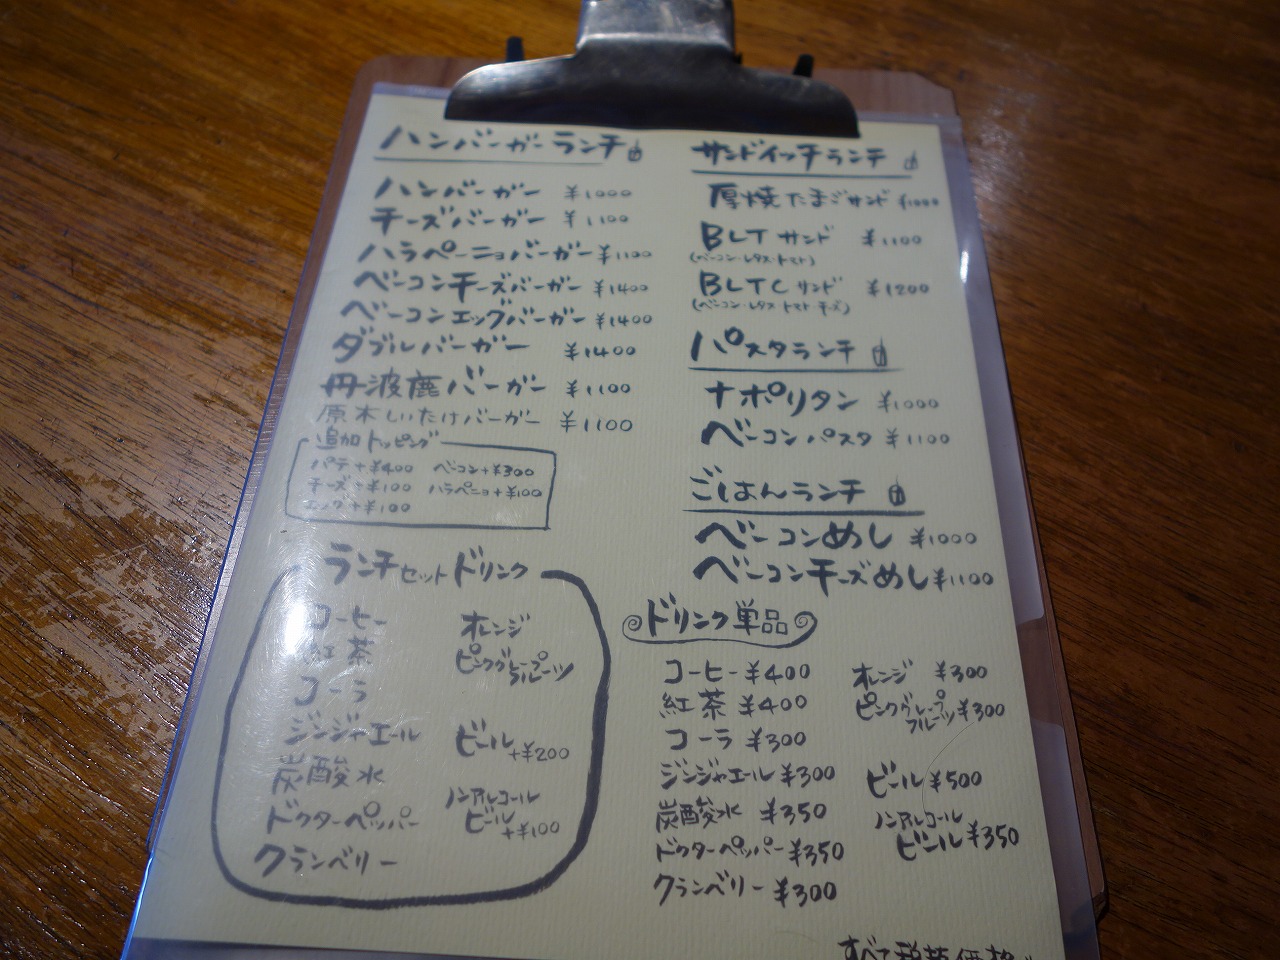 ハンバーガーランチ
ハンバーガー ¥1000
チーズバーガー ¥1100
ハラペーニョバーガー ¥1100
ベーコンチーズバーガー ¥1400
ベーコンエッグバーガー ¥1400
ダブルバーガー ¥1400
丹波鹿バーガー ¥1100
原木しいたけバーガー ¥1100
追加トッピング
パテ+¥400 ベーコン+¥300
チーズ+¥100 ハラペニョ+¥100
エッグ+¥100
ランチセットドリンク
コーヒー
紅茶
コーラ
ジンジャエール
炭酸水
ドクターペッパー
クランベリー
オレンジ
ピンクグレープ
フルーツ
ビール
+¥200
ノンアルコール
ビール
+¥100
サンドイッチランチ
厚焼たまごサンド ¥1000
BLTサンド ¥1100
(ベーコン・レタス・トマト)
BLTCサンド ¥1200
(ベーコン・レタス・トマト・チーズ)
パスタランチ
ナポリタン ¥1000
ベーコンパスタ ¥1100
ごはんランチ
ベーコンめし ¥1000
ベーコンチーズめし ¥1100
ドリンク単品
コーヒー ¥400
紅茶 ¥400
コーラ ¥300
ジンジャエール ¥300
炭酸水 ¥350
ドクターペッパー ¥350
クランベリー ¥300
オレンジ ¥300
ピンクグレープ
フルーツ ¥300
ビール ¥500
ノンアルコール
ビール ¥350
すべて税